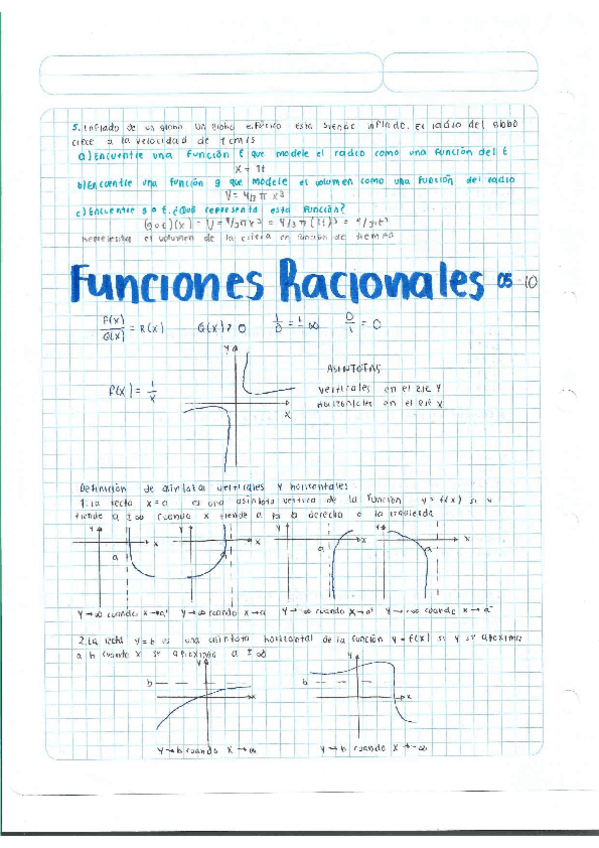 5. Inflado de un globo Un globo esférico está siendo inflado. El radio del globo
crece a la velocidad de 1 cm/s
a) Encuentre una función f que modele el radio como una función del t
X = 1t
b) Encuentre una función g que modele el volumen como una función del radio
V = 4/3 π x³
c) Encuentre g o f. ¿Qué representa esta función?
(g o f)(x) = V = 4/3 π x³ = 4/3 π (1t)³ =
representa el volumen de la esfera en función de tiempo
Funciones Racionales 05-10
P(x)/Q(x) = R(x) Q(x) ≠ 0 1/0 = ± ∞ 0/1 = 0
Y
ASINTOTAS
f(x) = 1/x
verticales en el eje Y
Horizontales en el eje X
X
Definición de asintotas verticales y horizontales
1. La recta x=a es una asíntota vertical de la función y=f(x) si y
tiende a ±∞ cuando x tiende a a la derecha o la izquierda
Y X Y X Y X Y X
a a a a
Y→∞ cuando X→a⁺ Y→∞ cuando X→a Y→-∞ cuando X→a⁺ Y→-∞ cuando X→a⁻
2. La recta y=b es una asintota horizontal de la función y=f(x) si y se aproxima
a b cuando x se aproxima a ±∞
Y Y
b b
X X
Y→b cuando X→∞ Y→b cuando X→-∞